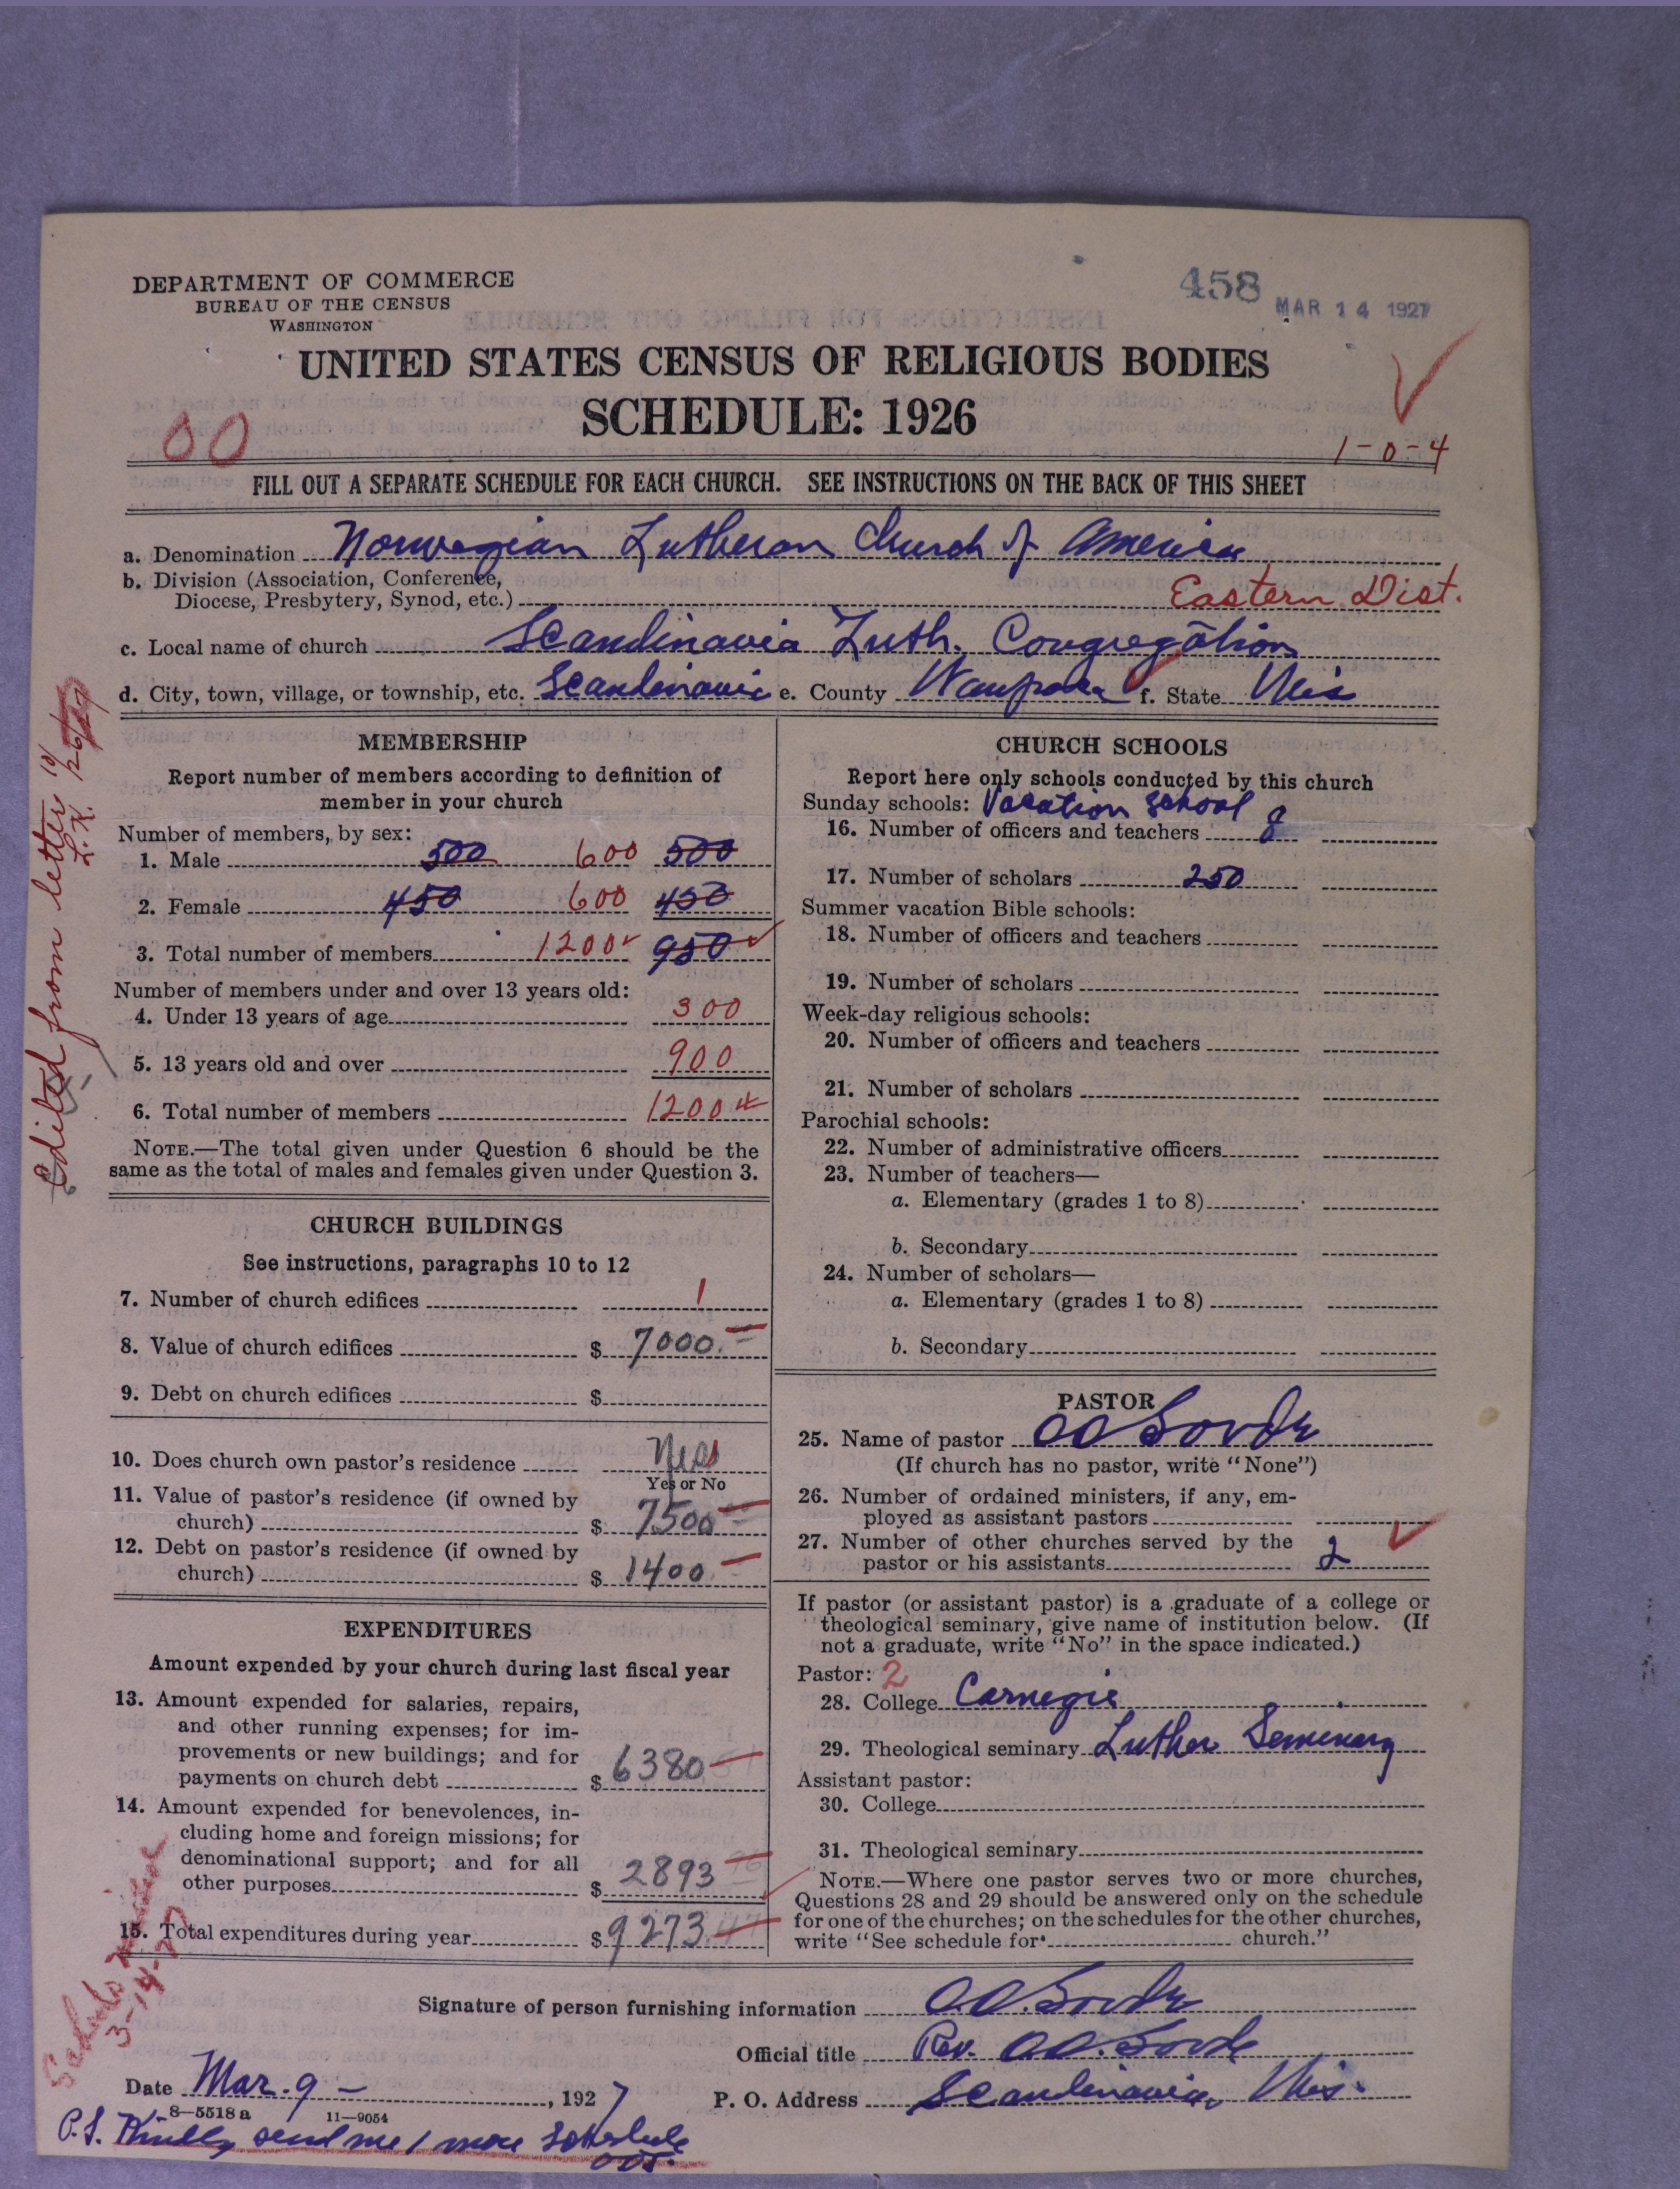 DEPARTMENT OF COMMERCE
BUREAU OF THE CENSUS
WASHINGTON
458
MAR 14 1927
UNITED STATES CENSUS OF RELIGIOUS BODIES
SCHEDULE: 1926
00
1-0-4
FILL OUT A SEPARATE SCHEDULE FOR EACH CHURCH. SEE INSTRUCTIONS ON THE BACK OF THIS SHEET
a. Denomination Norwegian Lutheran Church of America
b. Division (Association, Conference,
Diocese, Presbytery, Synod, etc.) Eastern Dist.
c. Local name of church Scandinavia Luth. Congregation
d. City, town, village, or township, etc. Scandinavia e. County Waupaca f. State Wis
Edited from letter
L.K.
MEMBERSHIP
Report number of members according to definition of
member in your church
Number of members, by sex:
1. Male 500 600 500
2. Female 450 600 450
3. Total number of members 1200 950
Number of members under and over 13 years old:
4. Under 13 years of age 300
5. 13 years old and over 900
6. Total number of members 1200
NOTE.—The total given under Question 6 should be the
same as the total of males and females given under Question 3.
CHURCH BUILDINGS
See instructions, paragraphs 10 to 12
7. Number of church edifices 1
8. Value of church edifices $ 7000.
9. Debt on church edifices $
10. Does church own pastor's residence
Yes or No
11. Value of pastor's residence (if owned by
church) $ 7500
12. Debt on pastor's residence (if owned by
church) $ 1400
EXPENDITURES
Amount expended by your church during last fiscal year
13. Amount expended for salaries, repairs,
and other running expenses; for im-
provements or new buildings; and for
payments on church debt $ 6380
14. Amount expended for benevolences, in-
cluding home and foreign missions; for
denominational support; and for all
other purposes $ 2893
15. Total expenditures during year $ 9273
CHURCH SCHOOLS
Report here only schools conducted by this church
Sunday schools: Vacation School
16. Number of officers and teachers 8
17. Number of scholars 250
Summer vacation Bible schools:
18. Number of officers and teachers
19. Number of scholars
Week-day religious schools:
20. Number of officers and teachers
21. Number of scholars
Parochial schools:
22. Number of administrative officers
23. Number of teachers—
a. Elementary (grades 1 to 8)
b. Secondary
24. Number of scholars—
a. Elementary (grades 1 to 8)
b. Secondary
PASTOR
25. Name of pastor OO Sovde
(If church has no pastor, write "None")
26. Number of ordained ministers, if any, em-
ployed as assistant pastors
27. Number of other churches served by the
pastor or his assistants 2
If pastor (or assistant pastor) is a graduate of a college or
theological seminary, give name of institution below. (If
not a graduate, write "No" in the space indicated.)
Pastor: 2
28. College Carnegie
29. Theological seminary Luther Seminary
Assistant pastor:
30. College
31. Theological seminary
NOTE.—Where one pastor serves two or more churches,
Questions 28 and 29 should be answered only on the schedule
for one of the churches; on the schedules for the other churches,
write "See schedule for church."
3-14-
Signature of person furnishing information O.O. Sovde
Official title Rev. O.O. Sovde
Date Mar. 9 —, 1927 P. O. Address Scandinavia, Wis.
8—5518 a 11—9054
P.S. Kindly send me 1 more Schedule